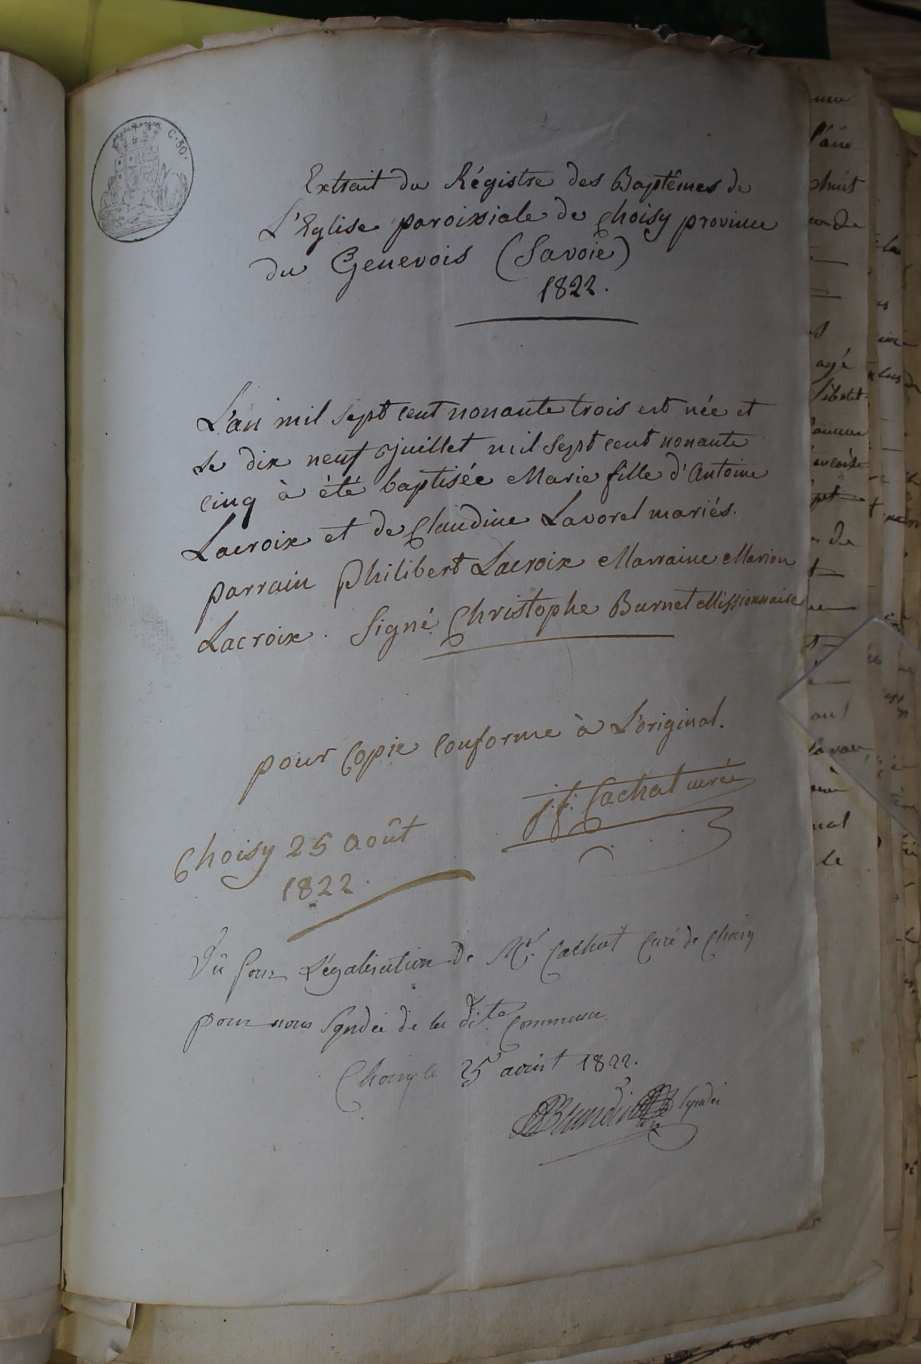 C. 50.
Extrait du Régistre des Baptêmes de
L'Eglise paroissiale de Choisy province
du Genevois (Savoie)
1822.
L'an mil sept cent nonante trois est née et
le dix neuf juillet mil sept cent nonante
cinq à été baptisée Marie fille d'Antoine
Lacroix et de Claudine Lavorel mariés.
parrain Philibert Lacroix Marraine Marion
Lacroix. Signé Christophe Burnet Missionnaire
pour Copie Conforme à L'original.
j. f. Cachat curé
Choisy 25 août
1822.
Vû pour Légalisation de Mr. Cachat Curé de Choisy
pour nous Syndic de la dite Commune
Choisy le 25 aout 1822.
Syndic